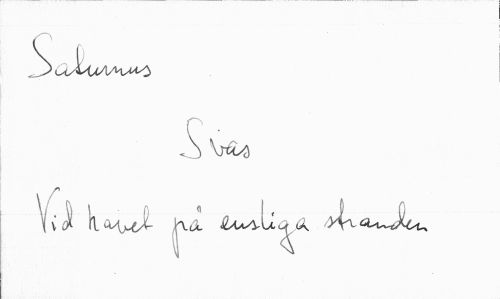 Saturnus
Sivas
Vid havet på ensliga stranden